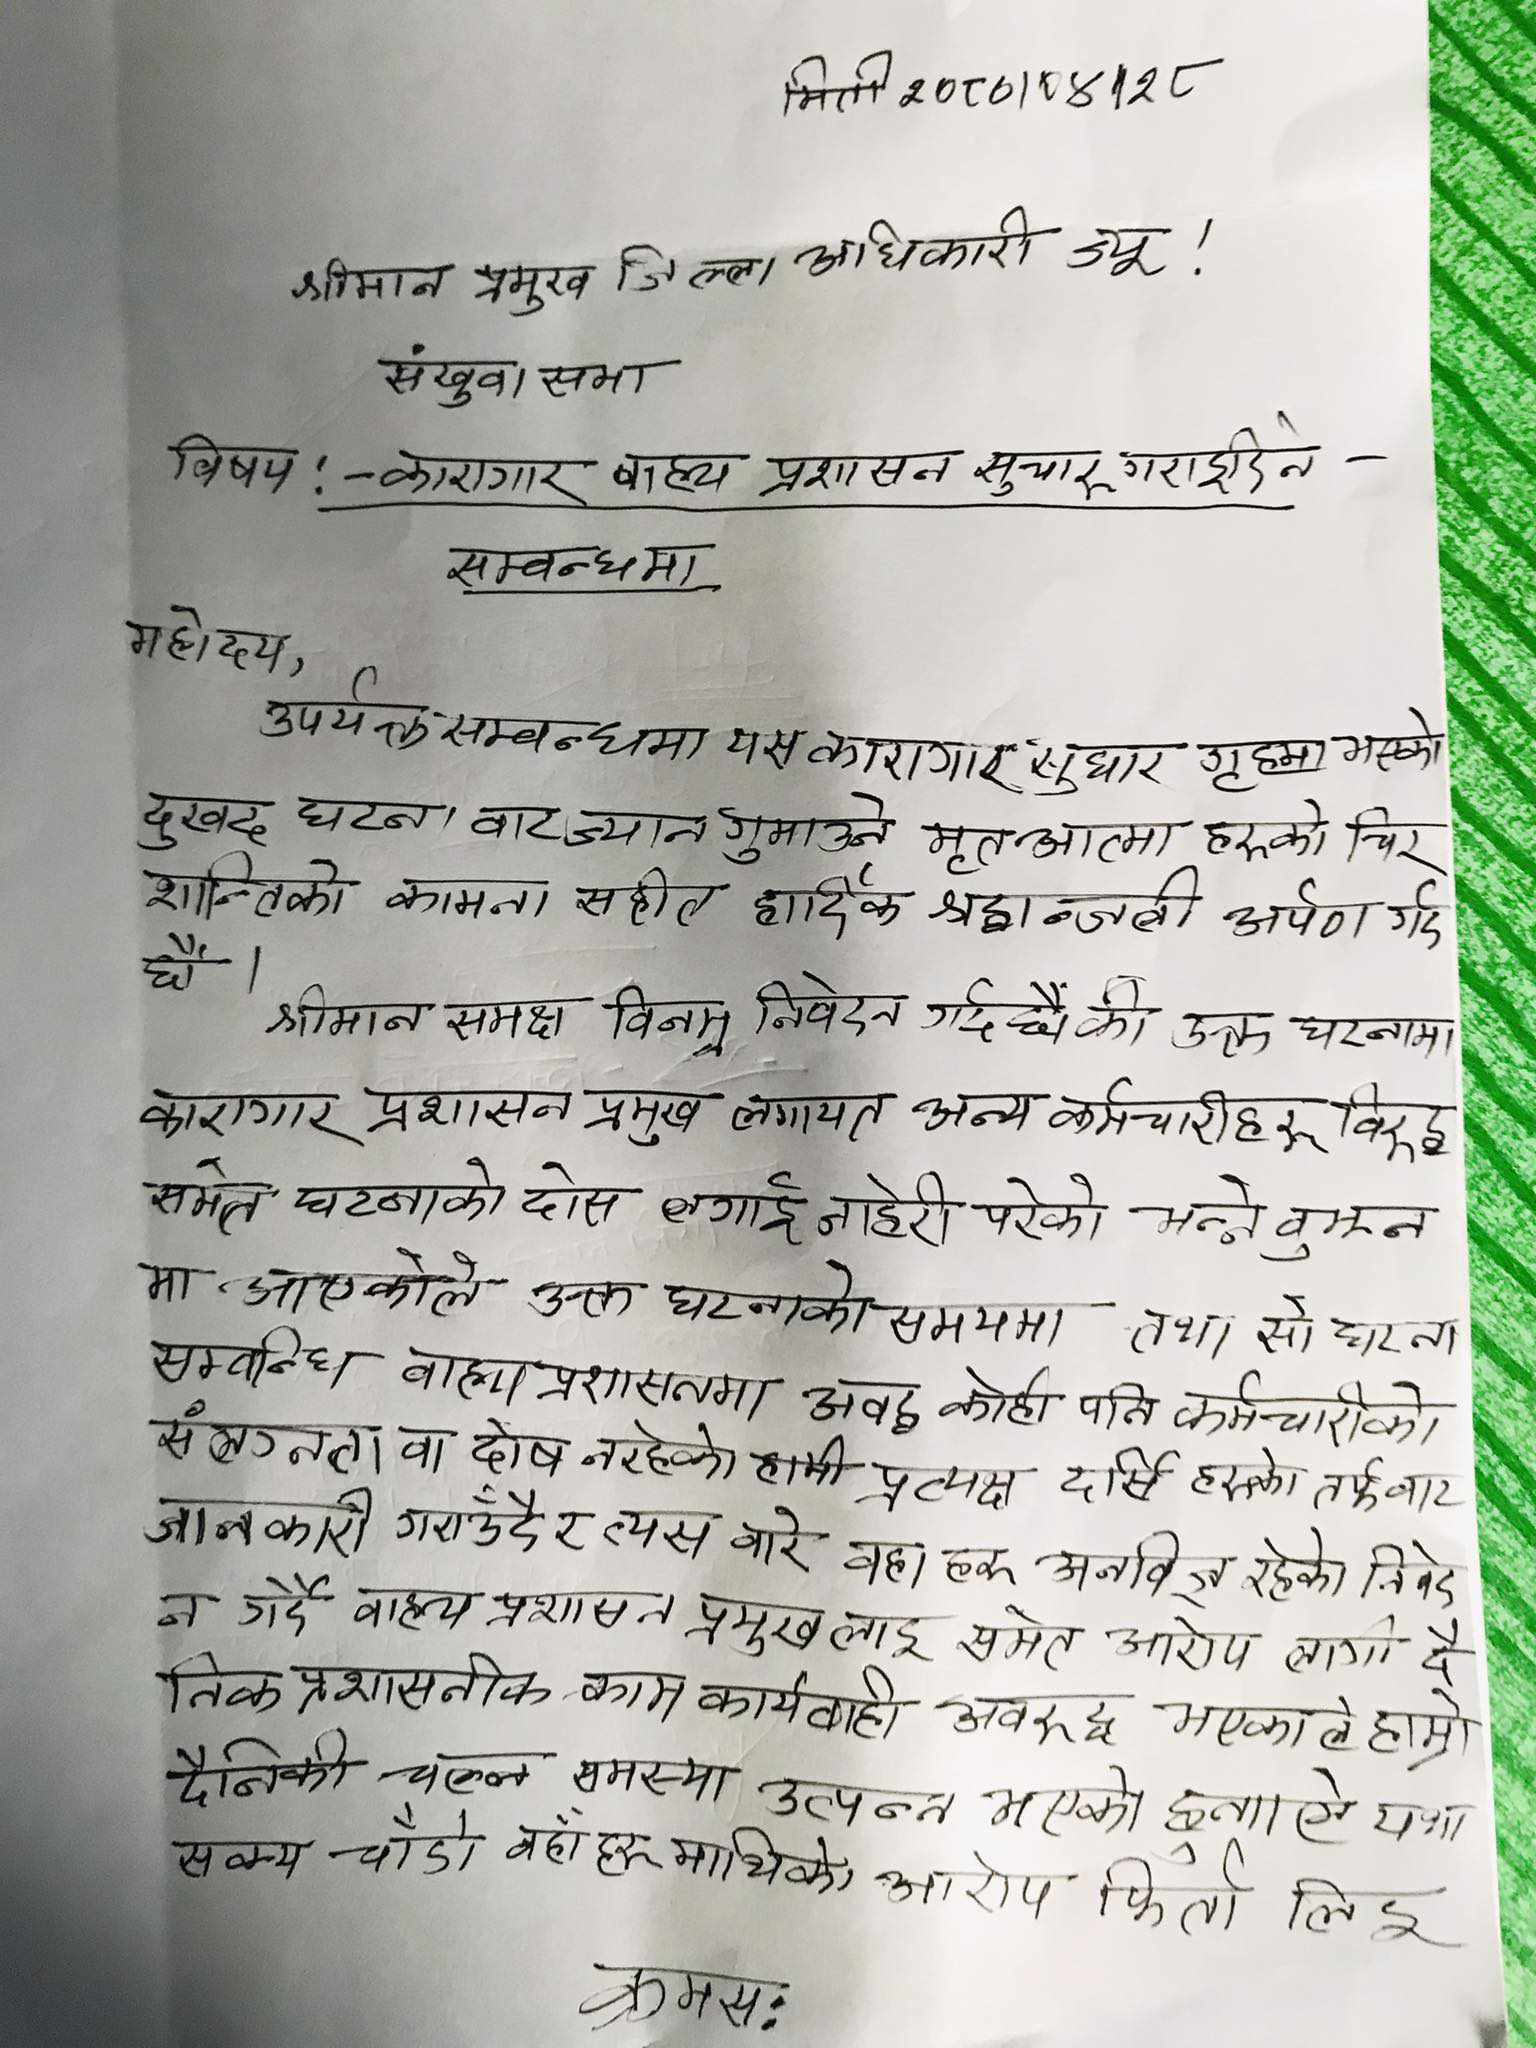 मिती २०८०।०४।२८
श्रीमान प्रमुख जिल्ला अधिकारी ज्यू !
संखुवासभा
विषय :- कारागार वाह्य प्रशासन सुचारू गराइदिने -
सम्वन्धमा
महोदय,
उपर्यक्त सम्वन्धमा यस कारागार सुधार गृहमा भएको
दुखद घटना वाट ज्यान गुमाउने मृतआत्मा हरूको चिर
शान्तिको कामना सहीत हार्दिक श्रद्धान्जली अर्पण गर्द
छौं ।
श्रीमान समक्ष विनम्र निवेदन गर्दछौं की उक्त घटनामा
कारागार प्रशासन प्रमुख लगायत अन्य कर्मचारीहरू विरूद्ध
समेत घटनाको दोस लगाई जाहेरी परेको भन्ने वुझन
मा आएकोले उक्त घटनाको समयमा तथा सो घटना
सम्वन्धि वाह्य प्रशासनमा अवद्ध कोही पनि कर्मचारीको
संलग्नता वा दोष नरहेको हामी प्रत्यक्ष दर्सि हरूको तर्फवाट
जानकारी गराउँदै र त्यस वारे वहा हरू अनविज्ञ रहेको निवेद
न गर्दै वाह्य प्रशासन प्रमुख लाइ समेत आरोप लागी दै
निक प्रशासनीक काम कार्यवाही अवरूद्ध भएकाले हाम्रो
दैनिकी चल्न समस्या उत्पन्न भएको हुनाले यथा
सक्य चाँडो वहाँहरू माथिको आरोप फिर्ता लिइ
क्रमस: